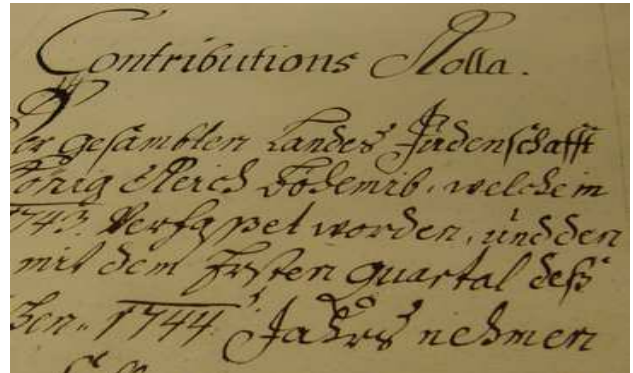 Contributions Rolla.
Der gesambten Landes Judenschafft
König Reich Böhemib, welche in
1743. Verfasset worden, und den
mit dem Ersten quartal deß
1744. Jahrs nehmen